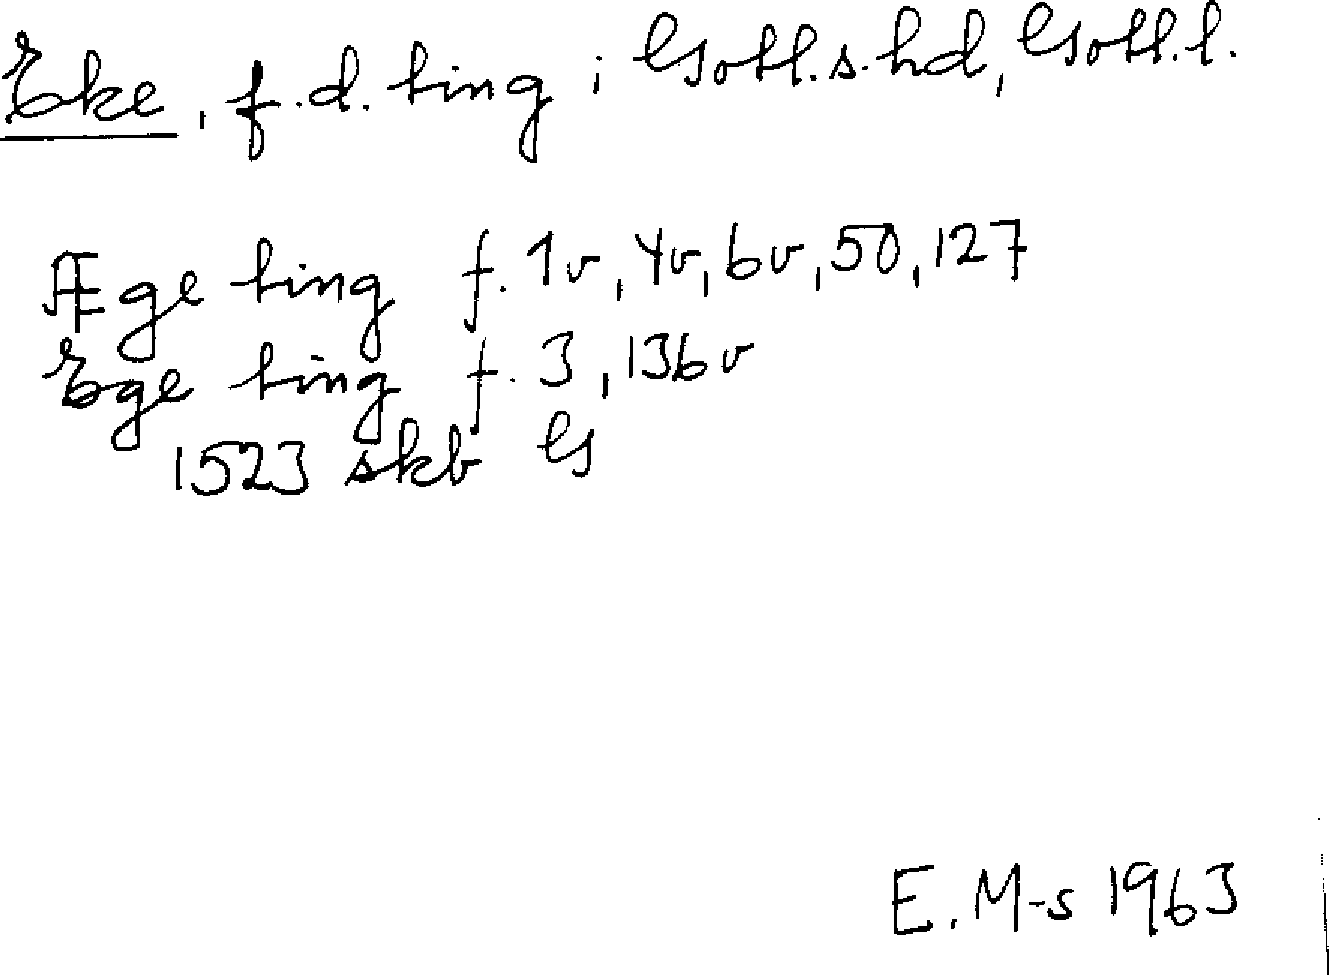 Eke, f.d. ting; Gotl.s.hd, Gotl.l.
Æge ting f. 1v, 4v, 6v, 50, 127
Ege ting f. 3, 136v
1523 skb G
E. M-s 1963